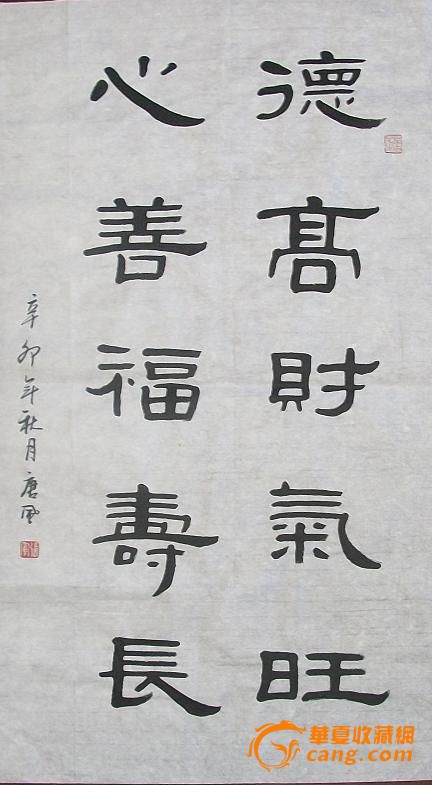 德高財氣旺
心善福壽長
辛卯年秋月唐風
華夏收藏網
cang.com